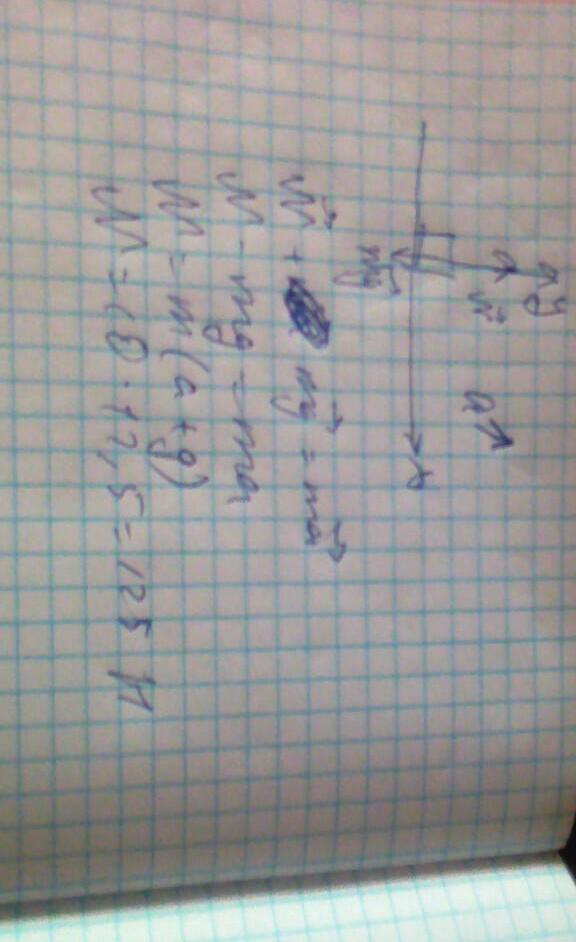 y
N⃗
a⃗
x
mg⃗
N⃗ + mg⃗ = ma⃗
N - mg = ma
N = m(a+g)
N = 10 · 12,5 = 125 Н